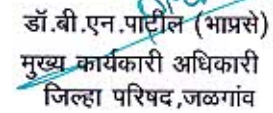 डॉ.बी.एन.पाटील (भाप्रसे)
मुख्य कार्यकारी अधिकारी
जिल्हा परिषद,जळगांव